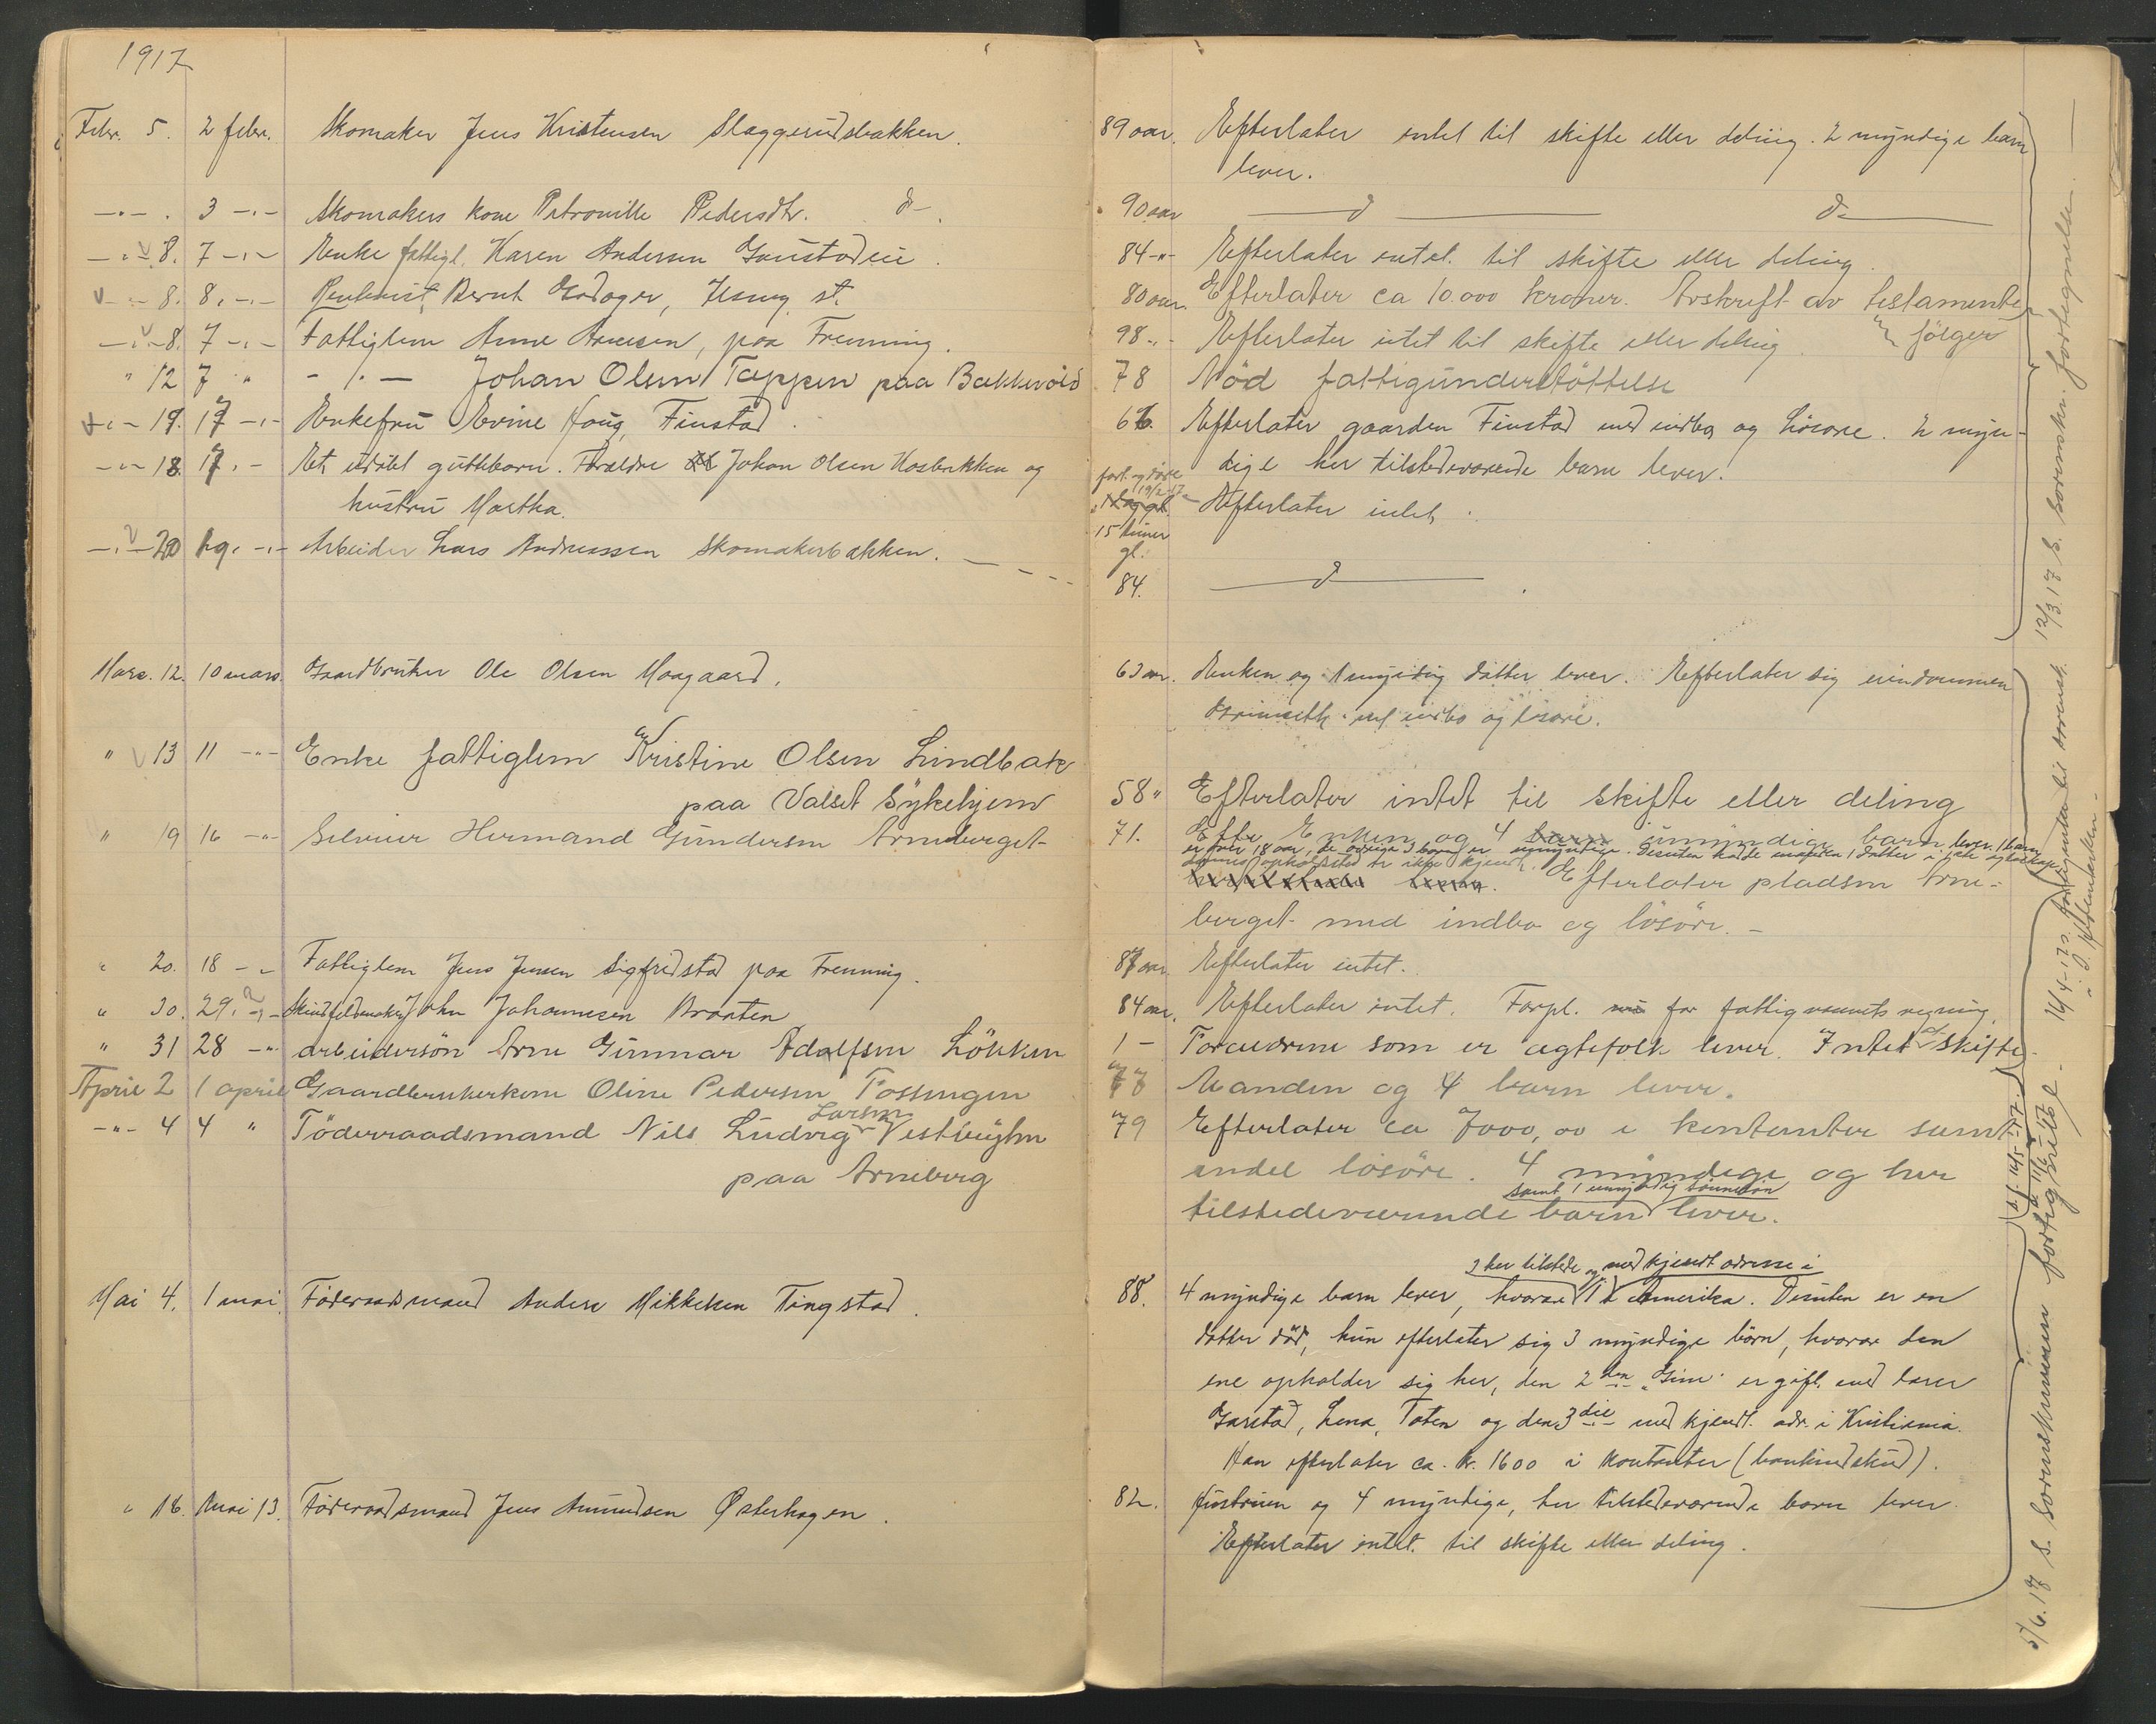 1917
Febr. 5. 2 febr. Skomaker Jens Kristensen Slaggerudsbakken. 89 aar. Efterlater intet til skifte eller deling. 2 myndige barn
lever.
-"- . 3 -"- Skomakers kone Petronille Pedersdtr. d- 90 aar d d-
-"- 8. 7 -"- Enke fattigl. Karen Andersen Gaustadeie. 84 -"- Efterlater intet til skifte eller deling.
-"- 8. 8. -"- Rentenist Bernt Godager, st. 80 aar. Efterlater ca 10.000 kroner. Avskrift av testamente
følger
-"- 8. 7 -"- Fattiglem Anne paa Frenning. 98 -"- Efterlater intet til skifte eller deling.
" 12 7 " - " - Johan Olsen Tappen paa Bækkevold 78 Nöd fattigunderstöttelse
-"- 19. 17 -"- Enkefru Evine Houg, Finstad. 66. Efterlater gaarden Finstad med indbo og lösöre. 2 myn-
dige her tilstedeværende barn lever.
-"- 18. 17. - Et udöbt guttebarn. Foreldre Johan Olsen Kosbekken og
hustru Martha.
født og döde
19/2 17
15 timer
gl.
Efterlater intet.
-"- 20 19. -"- Arbeider Lars Andreassen Skomakerbakken. 84. d
Mars. 12. 10 mars. Gaardbruker Ole Olsen Moagaard. 63 aar. Enken og 1 myndig datter lever. Efterlater sig eiendommen
med indbo og lösöre.
" 13 11 -"- Enke fattiglem Kristine Olsen Lindbak
paa Valset Sykehjem 58 " Efterlater intet til skifte eller deling
" 19 16 -"- Selveier Hermand Gundersen Arneberget- 71. Efter Enken og 4 barn umyndige barn lever. 1 barn
er over 18 aar, de övrige 3 barn er umyndige. Desuten hadde manden 1 datter
opholdssted er ikke kjendt.
Efterlater pladsen Arne-
berget med indbo og lösöre. -
" 20. 18 - - Fattiglem Jens Jensen Sigfridstad paa Frenning. 87 aar. Efterlater intet.
" 30. 29. -"- Skindfeldmaker John Johannesen Braaten 84 aar. Efterlater intet. Forpl. for fattigvæsenets regning.
" 31 28 -"- arbeidersön Arne Gunnar Adolfsen Lökken 1 - Foreldrene som er egtefolk lever. Intet at skifte.
April 2 1 april Gaardbrukerkone Oline Pedersen Fossengen 77 Manden og 4 barn lever.
-"- 4 4 " Föderraadsmand Nils Ludvig Larsen Vestbyhn
paa Arneberg 79 Efterlater ca 7000,00 i kontanter samt
endel lösöre. 4 myndige og her
samt 1 umyndig sönnesön
tilstedeværende barn lever.
Mai 4. 1 mai. Föderaadsmand Anders Mikkelsen Tingstad. 88. 4 myndige barn lever, hvorav 3 her tilstede og 1 med kjendt adresse i Amerika. Desuten er en
datter död, hun efterlater sig 3 myndige börn, hvorav den
ene opholder sig her, den 2den er gift med lærer
Garstad, Lena, Toten og den 3die med kjendt adr. i Kristiania.
Han efterlater ca. kr. 1600 i kontanter (bankindskud).
" 16. Mai 13. Föderaadsmand Jens Amundsen Østerhagen. 82. Hustruen og 4 myndige, her tilstedeværende barn lever.
Efterlater intet til skifte eller deling.
12/3. 17 S. sorenskr. fortegnelse.
16/4-17 s. fortegnelse til sorensk.
i S. Østerdalen.
5/6. 17 S. Sorenskriveren fortegnelse